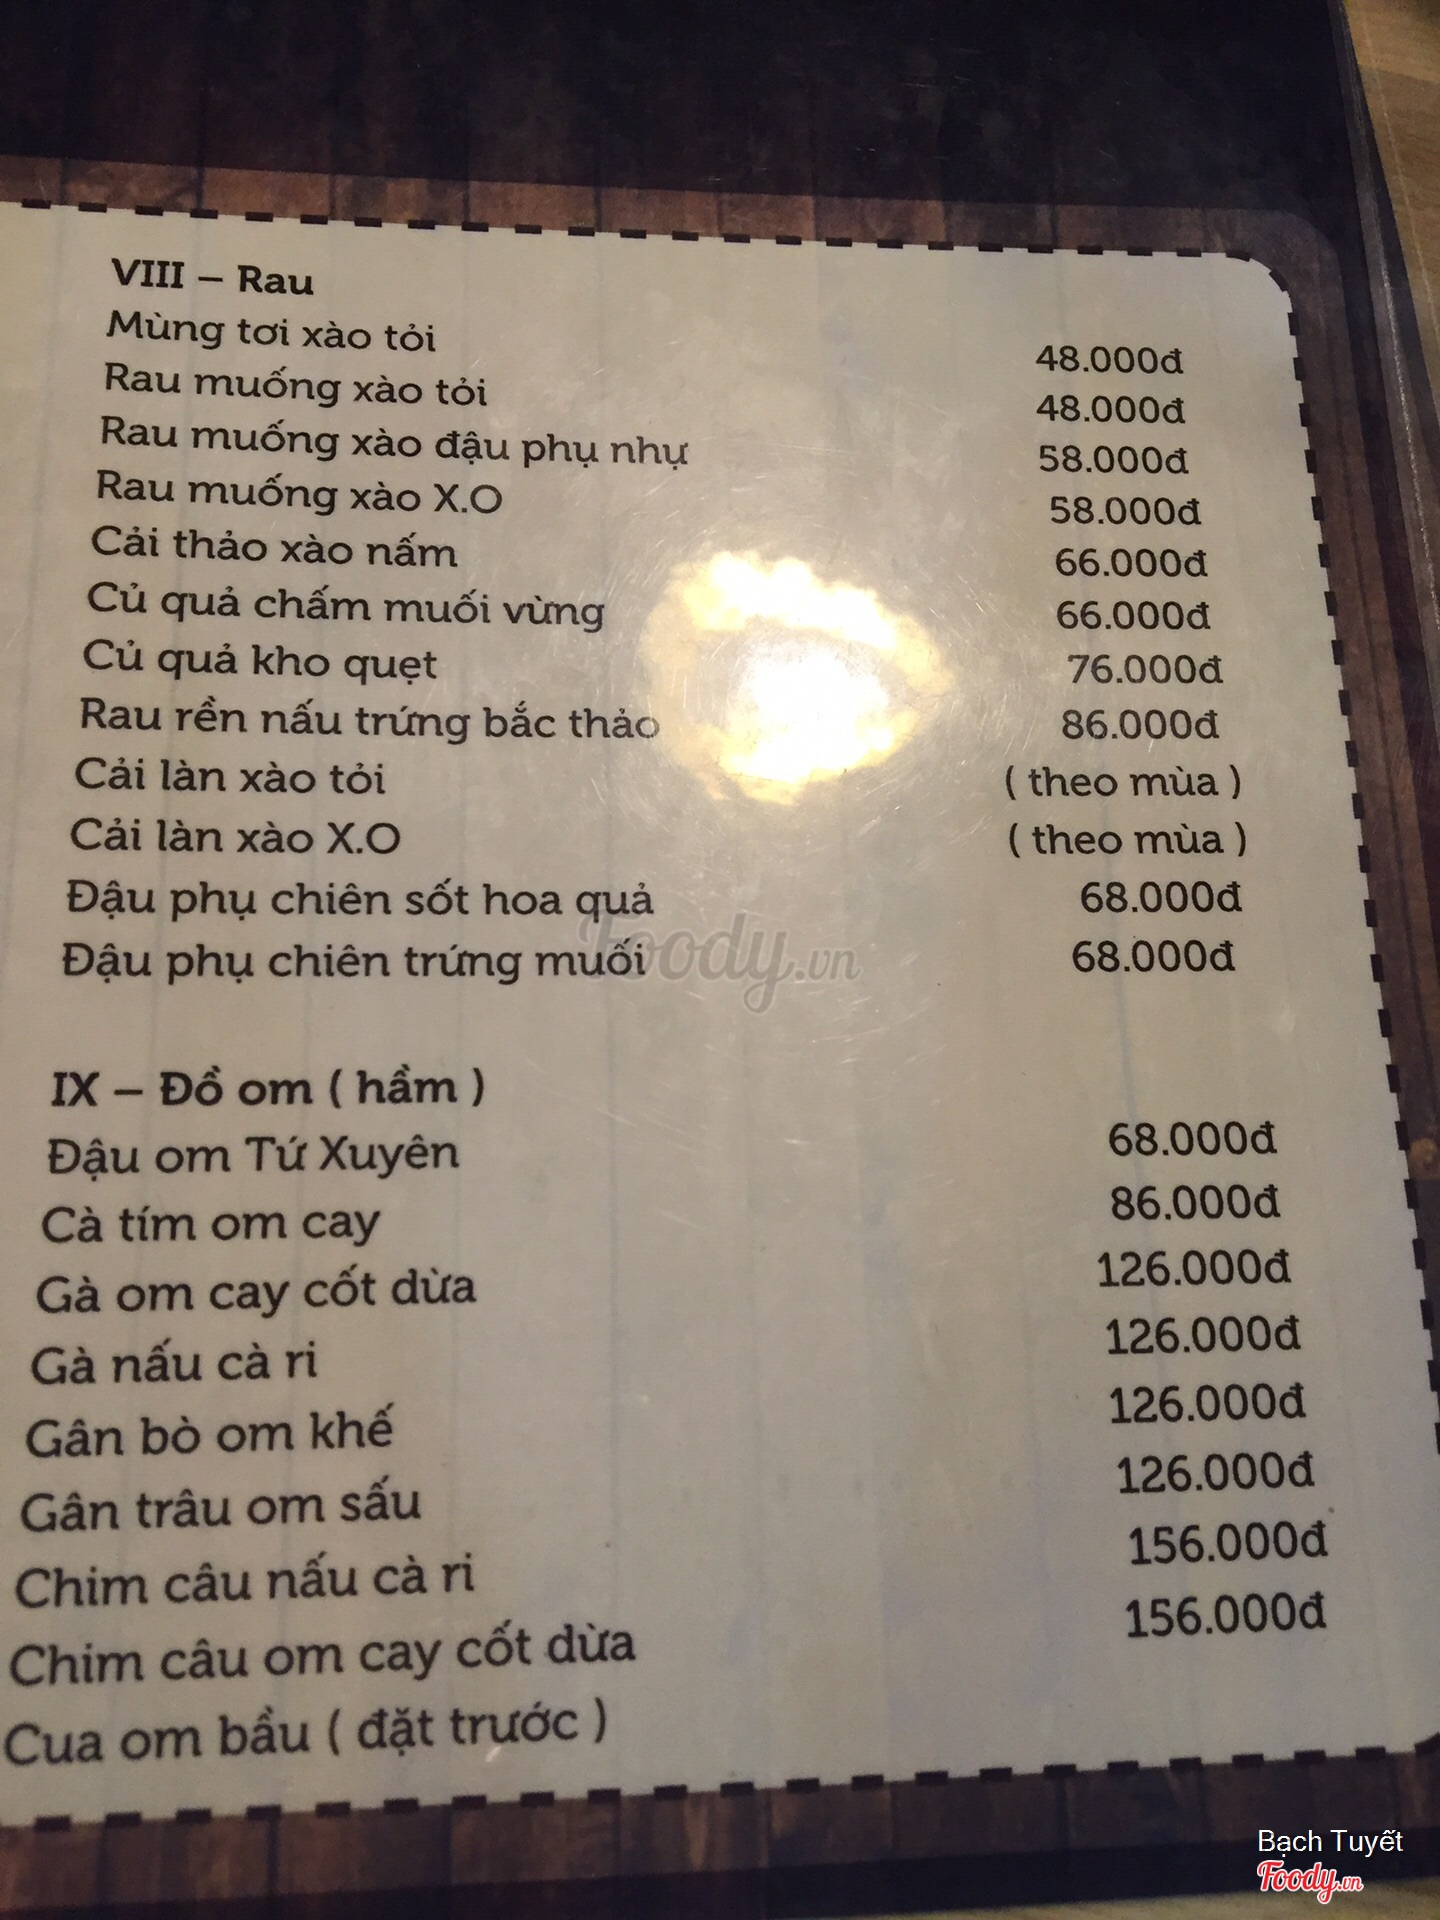 VIII – Rau
Mùng tơi xào tỏi 48.000đ
Rau muống xào tỏi 48.000đ
Rau muống xào đậu phụ nhự 58.000đ
Rau muống xào X.O 58.000đ
Cải thảo xào nấm 66.000đ
Củ quả chấm muối vừng 66.000đ
Củ quả kho quẹt 76.000đ
Rau rền nấu trứng bắc thảo 86.000đ
Cải làn xào tỏi ( theo mùa )
Cải làn xào X.O ( theo mùa )
Đậu phụ chiên sốt hoa quả 68.000đ
Đậu phụ chiên trứng muối 68.000đ
Foody.vn
IX – Đồ om ( hầm )
Đậu om Tứ Xuyên 68.000đ
Cà tím om cay 86.000đ
Gà om cay cốt dừa 126.000đ
Gà nấu cà ri 126.000đ
Gân bò om khế 126.000đ
Gân trâu om sấu 126.000đ
Chim câu nấu cà ri 156.000đ
Chim câu om cay cốt dừa 156.000đ
Cua om bầu ( đặt trước )
Bạch Tuyết
Foody.vn